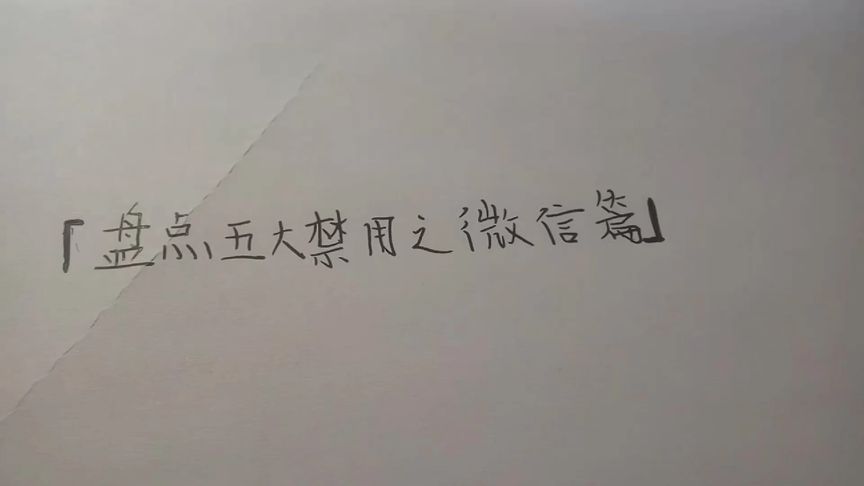 「盘点五大禁用之微信篇」